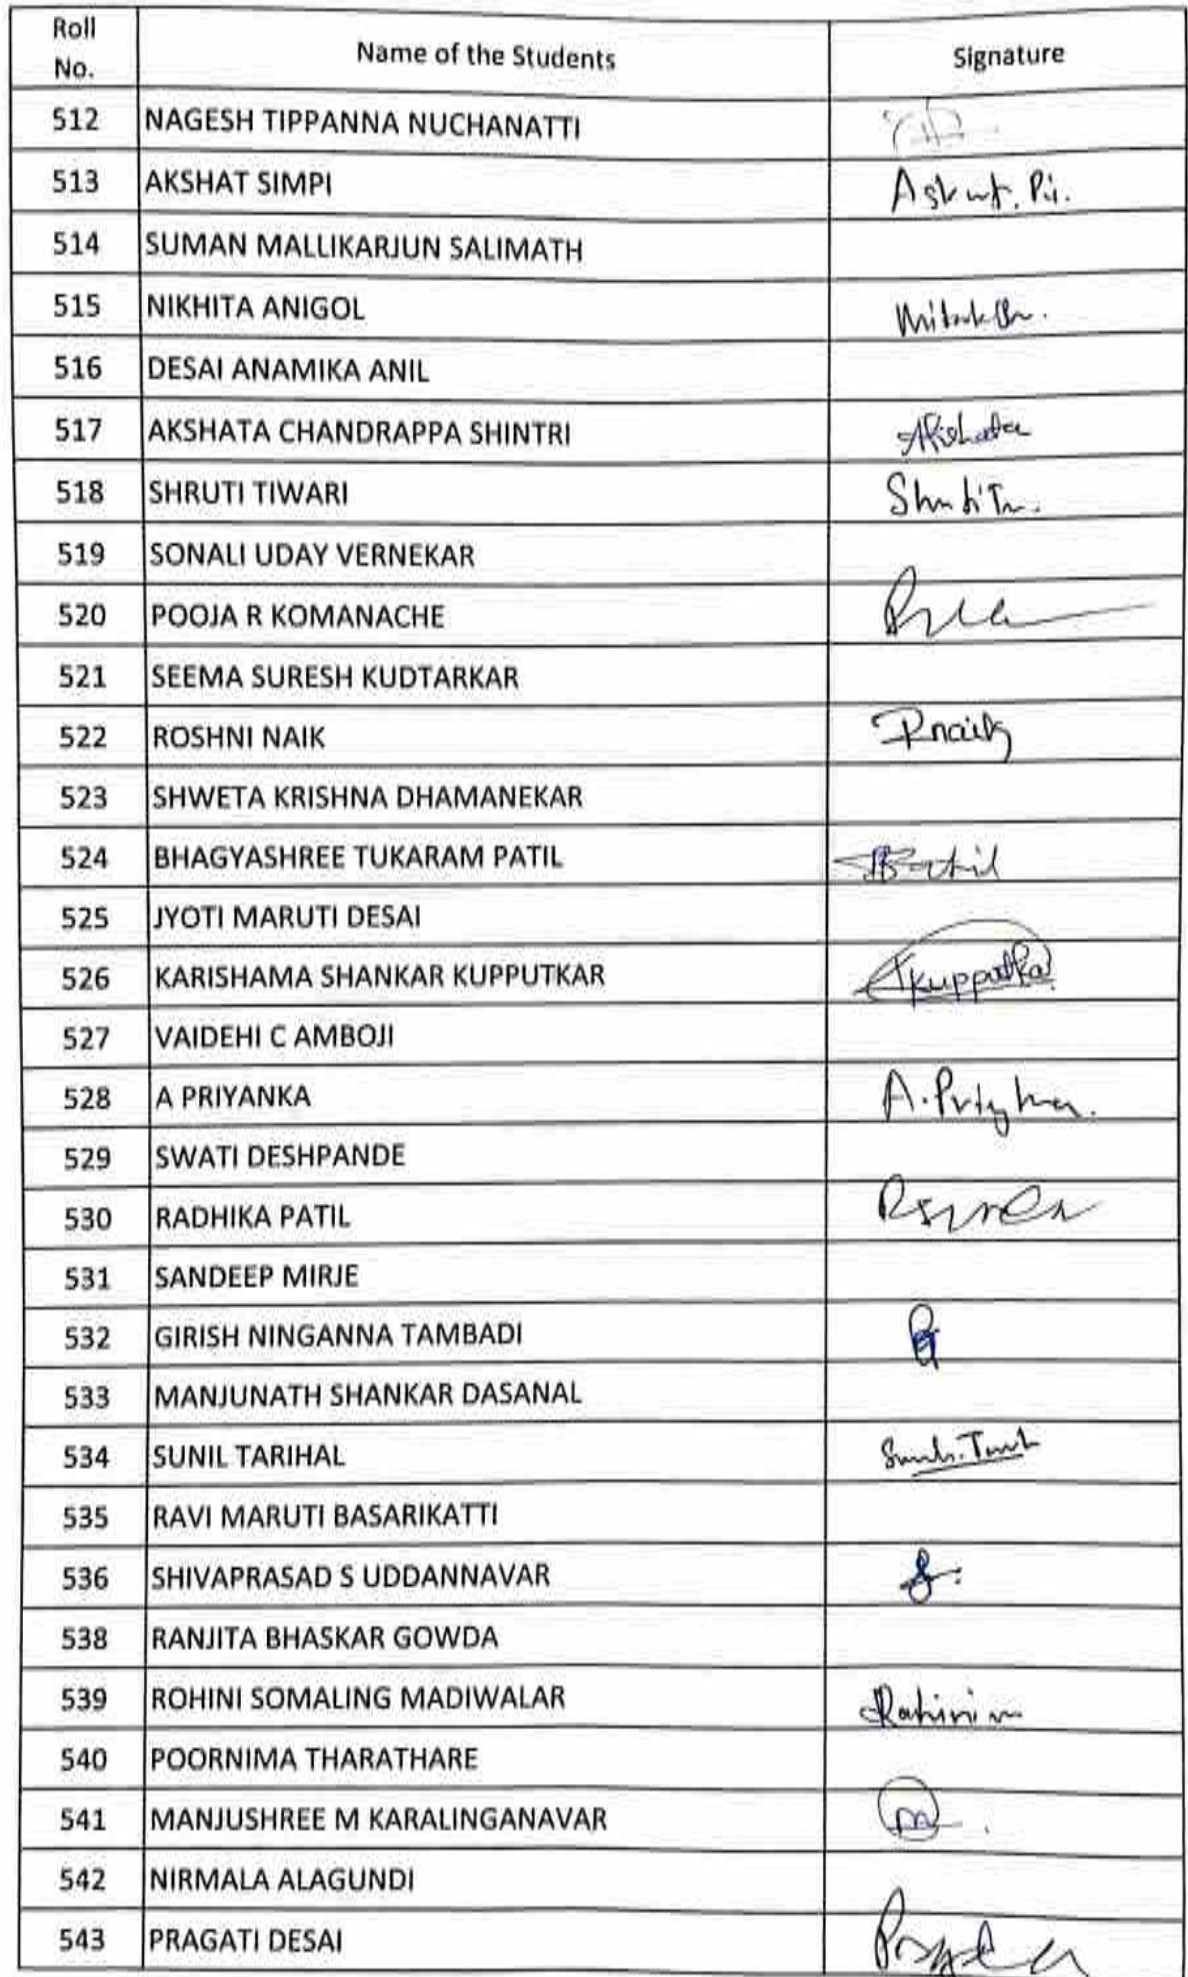 Roll No. Name of the Students Signature
512 NAGESH TIPPANNA NUCHANATTI
513 AKSHAT SIMPI
514 SUMAN MALLIKARJUN SALIMATH
515 NIKHITA ANIGOL
516 DESAI ANAMIKA ANIL
517 AKSHATA CHANDRAPPA SHINTRI Akshata
518 SHRUTI TIWARI
519 SONALI UDAY VERNEKAR
520 POOJA R KOMANACHE
521 SEEMA SURESH KUDTARKAR
522 ROSHNI NAIK Rnaik
523 SHWETA KRISHNA DHAMANEKAR
524 BHAGYASHREE TUKARAM PATIL
525 JYOTI MARUTI DESAI
526 KARISHAMA SHANKAR KUPPUTKAR
527 VAIDEHI C AMBOJI
528 A PRIYANKA
529 SWATI DESHPANDE
530 RADHIKA PATIL
531 SANDEEP MIRJE
532 GIRISH NINGANNA TAMBADI
533 MANJUNATH SHANKAR DASANAL
534 SUNIL TARIHAL
535 RAVI MARUTI BASARIKATTI
536 SHIVAPRASAD S UDDANNAVAR
538 RANJITA BHASKAR GOWDA
539 ROHINI SOMALING MADIWALAR
540 POORNIMA THARATHARE
541 MANJUSHREE M KARALINGANAVAR
542 NIRMALA ALAGUNDI
543 PRAGATI DESAI